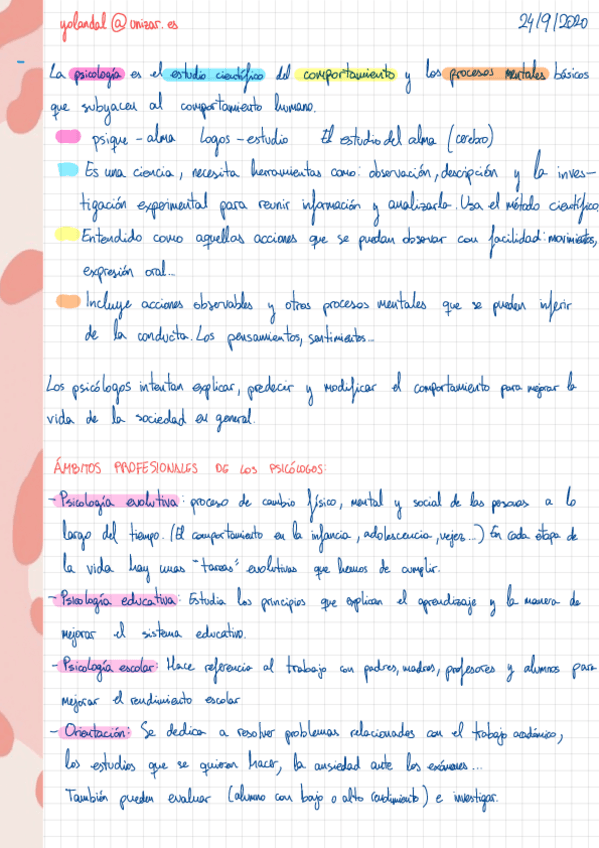 yolandal@unizar.es 24/9/2020
La psicología es el estudio científico del comportamiento y los procesos mentales básicos
que subyacen al comportamiento humano.
psique - alma Logos - estudio El estudio del alma (cerebro)
Es una ciencia, necesita herramientas como: observación, descripción y la inves-
tigación experimental para reunir información y analizarla. Usa el método científico
Entendido como aquellas acciones que se puedan observar con facilidad: movimientos,
expresión oral...
Incluye acciones observables y otros procesos mentales que se pueden inferir
de la conducta. Los pensamientos, sentimientos...
Los psicólogos intentan explicar, predecir y modificar el comportamiento para mejorar la
vida de la sociedad en general.
ÁMBITOS PROFESIONALES DE LOS PSICÓLOGOS:
- Psicología evolutiva: proceso de cambio físico, mental y social de las personas a lo
largo del tiempo. (El comportamiento en la infancia, adolescencia, vejez...) En cada etapa de
la vida hay unas "tareas" evolutivas que hemos de cumplir.
- Psicología educativa: Estudia los principios que explican el aprendizaje y la manera de
mejorar el sistema educativo.
- Psicología escolar: Hace referencia al trabajo con padres, madres, profesores y alumnos para
mejorar el rendimiento escolar
- Orientación: Se dedica a resolver problemas relacionados con el trabajo académico,
los estudios que se quieran hacer, la ansiedad ante los exámenes...
También pueden evaluar (alumno con bajo o alto rendimiento) e investigar.